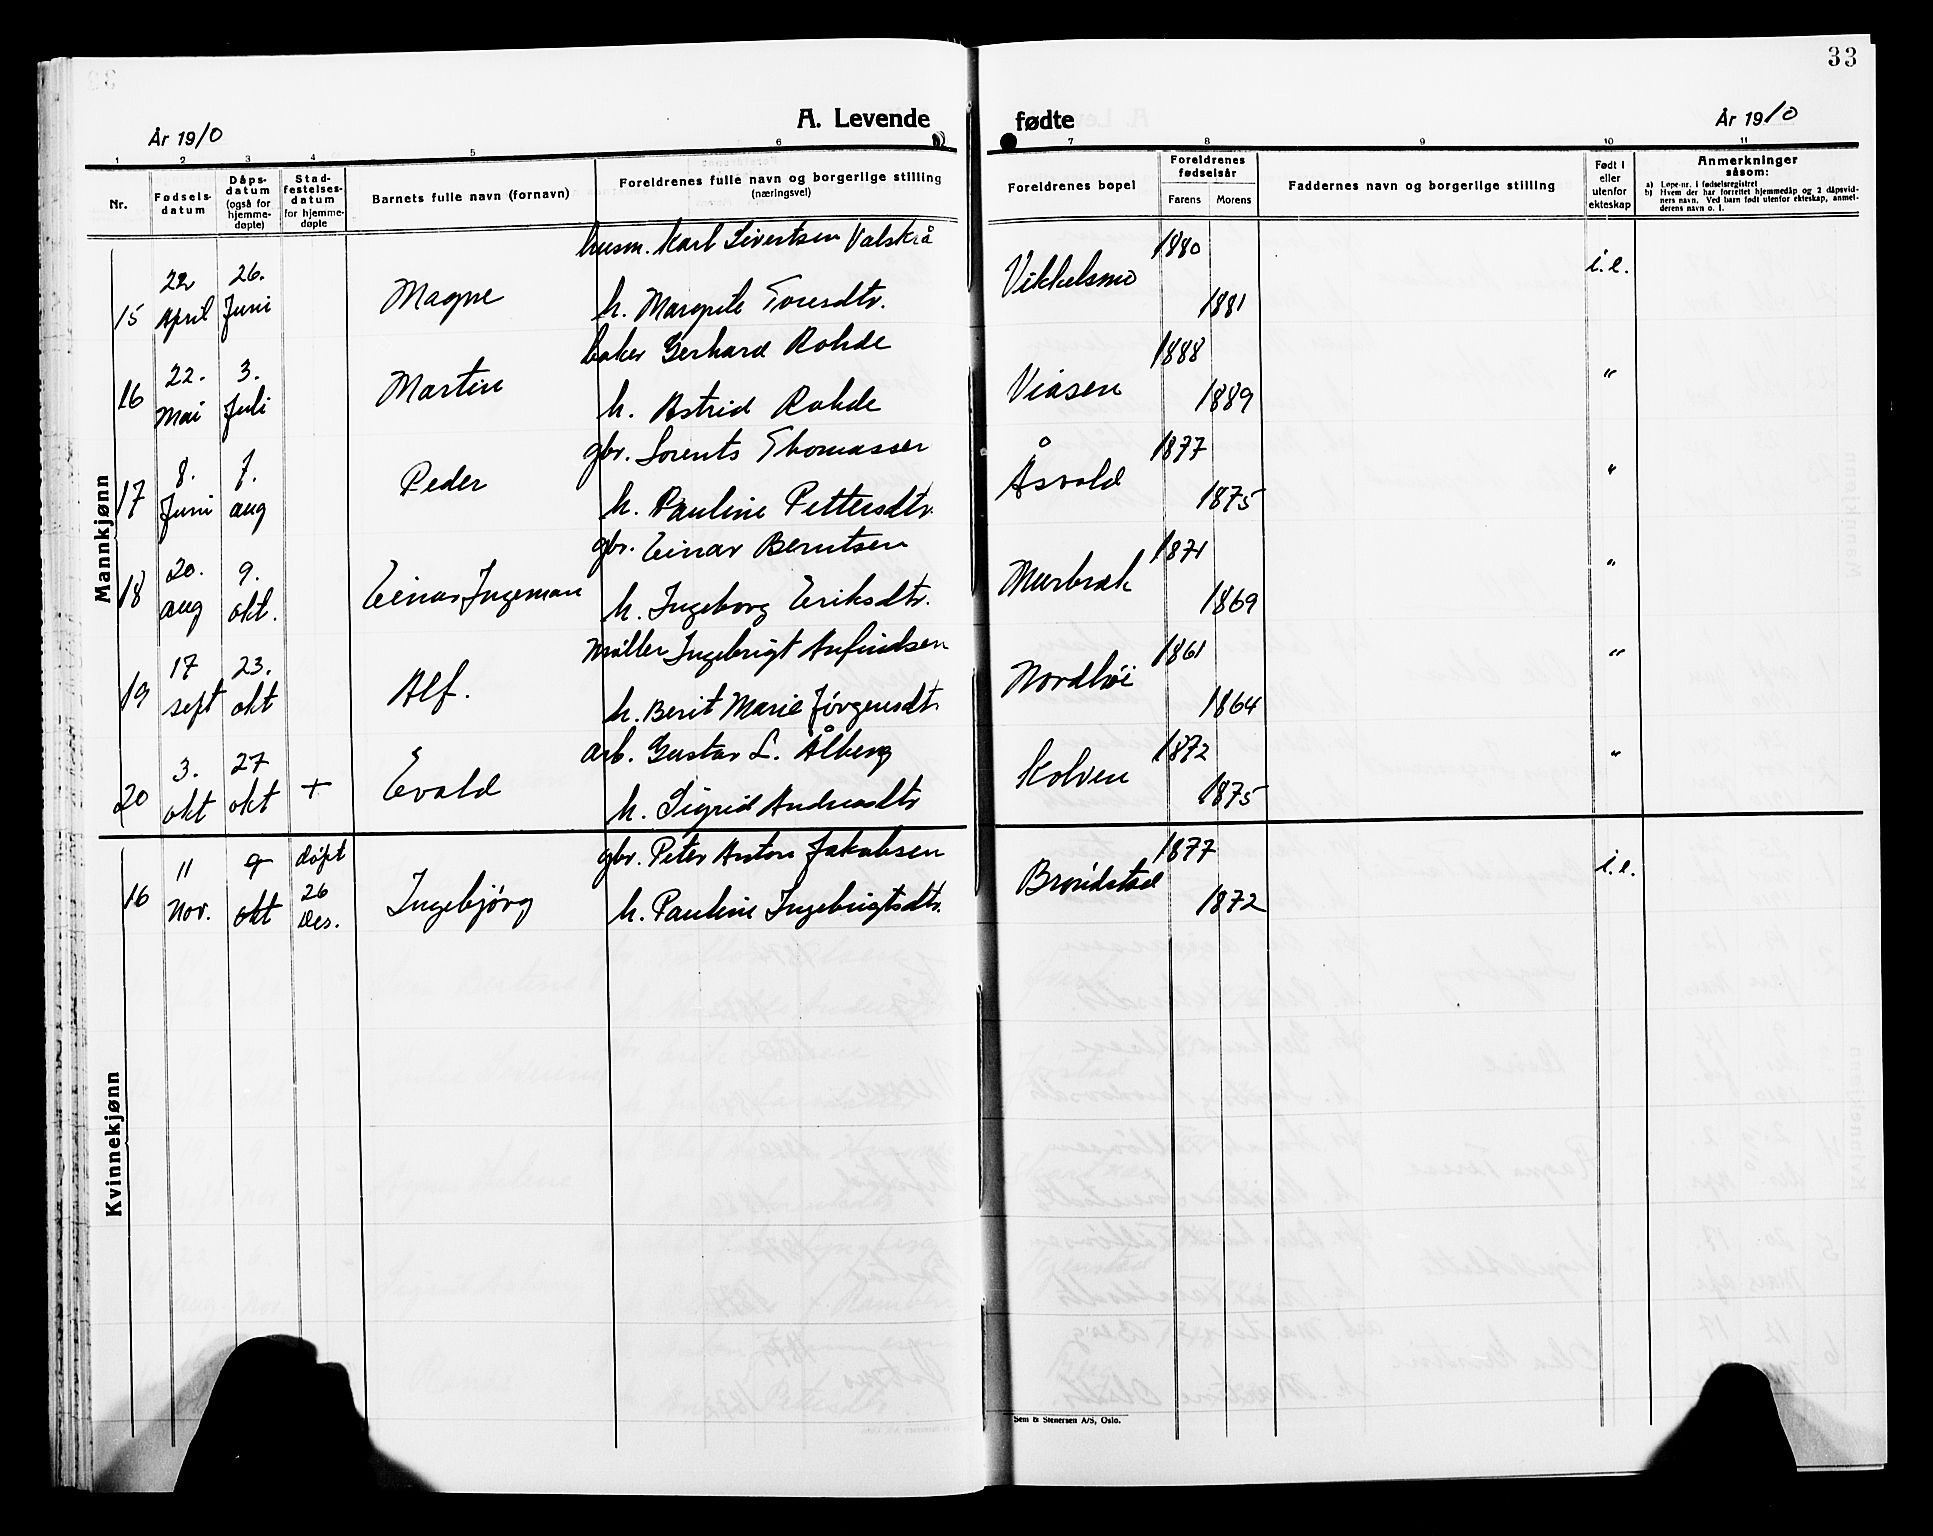 33
A. Levende fødte
År 1910
År 1910
1 2 3 4 5 6 7 8 9 10 11
Nr.
Fødsels-
datum
Dåps-
datum
(også for
hjemme-
døpte)
Stad-
festelses-
datum
for hjemme-
døpte
Barnets fulle navn (fornavn)
Foreldrenes fulle navn og borgerlige stilling
(næringsvei)
Foreldrenes bopel
Foreldrenes
fødselsår
Farens Morens
Faddernes navn og borgerlige stilling
Født i
eller
utenfor
ekteskap
Anmerkninger
såsom:
a) Løpe-nr. i fødselsregistret
b) Hvem der har forrettet hjemmedåp og 2 dåpsvid-
ners navn. Ved barn født utenfor ekteskap, anmel-
derens navn o. l.
Mannkjønn
husm. Karl Sivertsen Valskrå 1880
15 22 April 26. Juni Magne h. Margrete Toresdtr. Vikkelsmo 1881 i.e.
baker Gerhard Rohde 1888
16 22. Mai 3. Juli Martin h. Astrid Rohde Viåsen 1889 "
gbr. Lorents Thomassen 1877
17 8. Juni 7. aug Peder h. Pauline Pettersdtr. Åsvold 1875 "
gbr. Einar Berntsen 1871
18 20. aug 9. okt. Einar Ingeman h. Ingeborg Eriksdtr. Murbræk 1869 "
Møller Ingebrigt Anfindsen 1861
19 17 sept 23. okt Alf. h. Berit Marie Jørgensdtr Nordhøi 1864 "
arb. Gustav L. Ålberg 1872
20 3. okt 27 okt + Evald h. Sigrid Andreasdtr Kolven 1875 "
Kvinnekjønn
gbr. Peter Anton Jakobsen 1877
16 11 Nov. 9 okt døpt 26 Des. Ingebjørg h. Pauline Ingebrigtsdtr. Brøidstad 1872 i.e.
Sem & Stenersen A/S, Oslo.